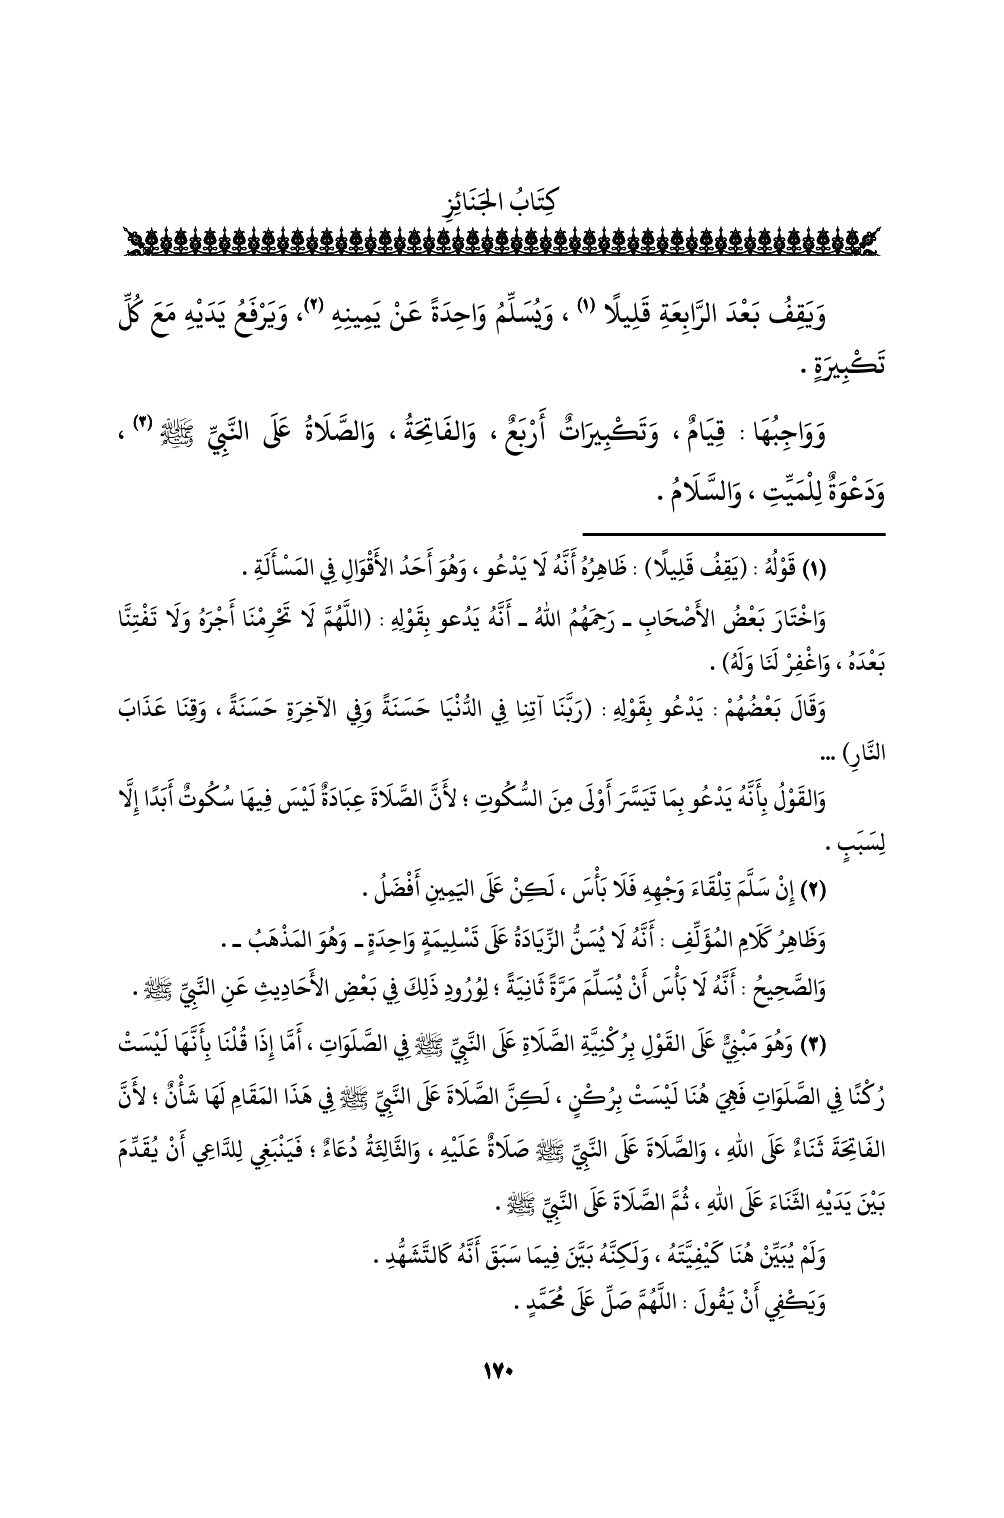 كِتَابُ الجَنَائِزِ
وَيَقِفُ بَعْدَ الرَّابِعَةِ قَلِيلًا (١) ، وَيُسَلِّمُ وَاحِدَةً عَنْ يَمِينِهِ (٢)، وَيَرْفَعُ يَدَيْهِ مَعَ كُلِّ
تَكْبِيرَةٍ .
وَوَاجِبُهَا : قِيَامٌ ، وَتَكْبِيرَاتٌ أَرْبَعٌ ، وَالفَاتِحَةُ ، وَالصَّلَاةُ عَلَى النَّبِيِّ ﷺ (٣) ،
وَدَعْوَةٌ لِلْمَيِّتِ ، وَالسَّلَامُ .
(١) قَوْلُهُ : (يَقِفُ قَلِيلًا) : ظَاهِرُهُ أَنَّهُ لَا يَدْعُو ، وَهُوَ أَحَدُ الأَقْوَالِ فِي المَسْأَلَةِ .
وَاخْتَارَ بَعْضُ الأَصْحَابِ ـ رَحِمَهُمُ اللهُ ـ أَنَّهُ يَدُعو بِقَوْلِهِ : (اللَّهُمَّ لَا تَحْرِمْنَا أَجْرَهُ وَلَا تَفْتِنَّا
بَعْدَهُ ، وَاغْفِرْ لَنَا وَلَهُ) .
وَقَالَ بَعْضُهُمْ : يَدْعُو بِقَوْلِهِ : (رَبَّنَا آتِنِا فِي الدُّنْيَا حَسَنَةً وَفِي الآخِرَةِ حَسَنَةً ، وَقِنَا عَذَابَ
النَّارِ) ...
وَالقَوْلُ بِأَنَّهُ يَدْعُو بِمَا تَيَسَّرَ أَوْلَى مِنَ السُّكُوتِ ؛ لأَنَّ الصَّلَاةَ عِبَادَةٌ لَيْسَ فِيهَا سُكُوتٌ أَبَدًا إِلَّا
لِسَبَبٍ .
(٢) إِنْ سَلَّمَ تِلْقَاءَ وَجْهِهِ فَلَا بَأْسَ ، لَكِنْ عَلَى اليَمِينِ أَفْضَلُ .
وَظَاهِرُ كَلَامِ المُؤَلِّفِ : أَنَّهُ لَا يُسَنُّ الزِّيَادَةُ عَلَى تَسْلِيمَةٍ وَاحِدَةٍ ـ وَهُوَ المَذْهَبُ ـ .
وَالصَّحِيحُ : أَنَّهُ لَا بَأْسَ أَنْ يُسَلِّمَ مَرَّةً ثَانِيَةً ؛ لِوُرُودِ ذَلِكَ فِي بَعْضِ الأَحَادِيثِ عَنِ النَّبِيِّ ﷺ .
(٣) وَهُوَ مَبْنِيٌّ عَلَى القَوْلِ بِرُكْنِيَّةِ الصَّلَاةِ عَلَى النَّبِيِّ ﷺ فِي الصَّلَوَاتِ ، أَمَّا إِذَا قُلْنَا بِأَنَّهَا لَيْسَتْ
رُكْنًا فِي الصَّلَوَاتِ فَهِيَ هُنَا لَيْسَتْ بِرُكْنٍ ، لَكِنَّ الصَّلَاةَ عَلَى النَّبِيِّ ﷺ فِي هَذَا المَقَامِ لَهَا شَأْنٌ ؛ لأَنَّ
الفَاتِحَةَ ثَنَاءٌ عَلَى اللهِ ، وَالصَّلَاةَ عَلَى النَّبِيِّ ﷺ صَلَاةٌ عَلَيْهِ ، وَالثَّالِثَةُ دُعَاءٌ ؛ فَيَنْبَغِي لِلدَّاعِي أَنْ يُقَدِّمَ
بَيْنَ يَدَيْهِ الثَّنَاءَ عَلَى اللهِ ، ثُمَّ الصَّلَاةَ عَلَى النَّبِيِّ ﷺ .
وَلَمْ يُبَيِّنْ هُنَا كَيْفِيَّتَهُ ، وَلَكِنَّهُ بَيَّنَ فِيمَا سَبَقَ أَنَّهُ كَالتَّشَهُّدِ .
وَيَكْفِي أَنْ يَقُولَ : اللَّهُمَّ صَلِّ عَلَى مُحَمَّدٍ .
١٧٠